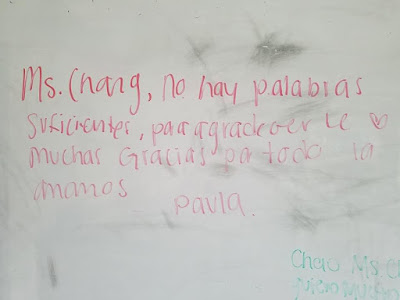 Ms. Chang, no hay palabras
suficientes, para agradecerle ♡
muchas Gracias por todo la
amamos
Paula.
Chao Ms. C